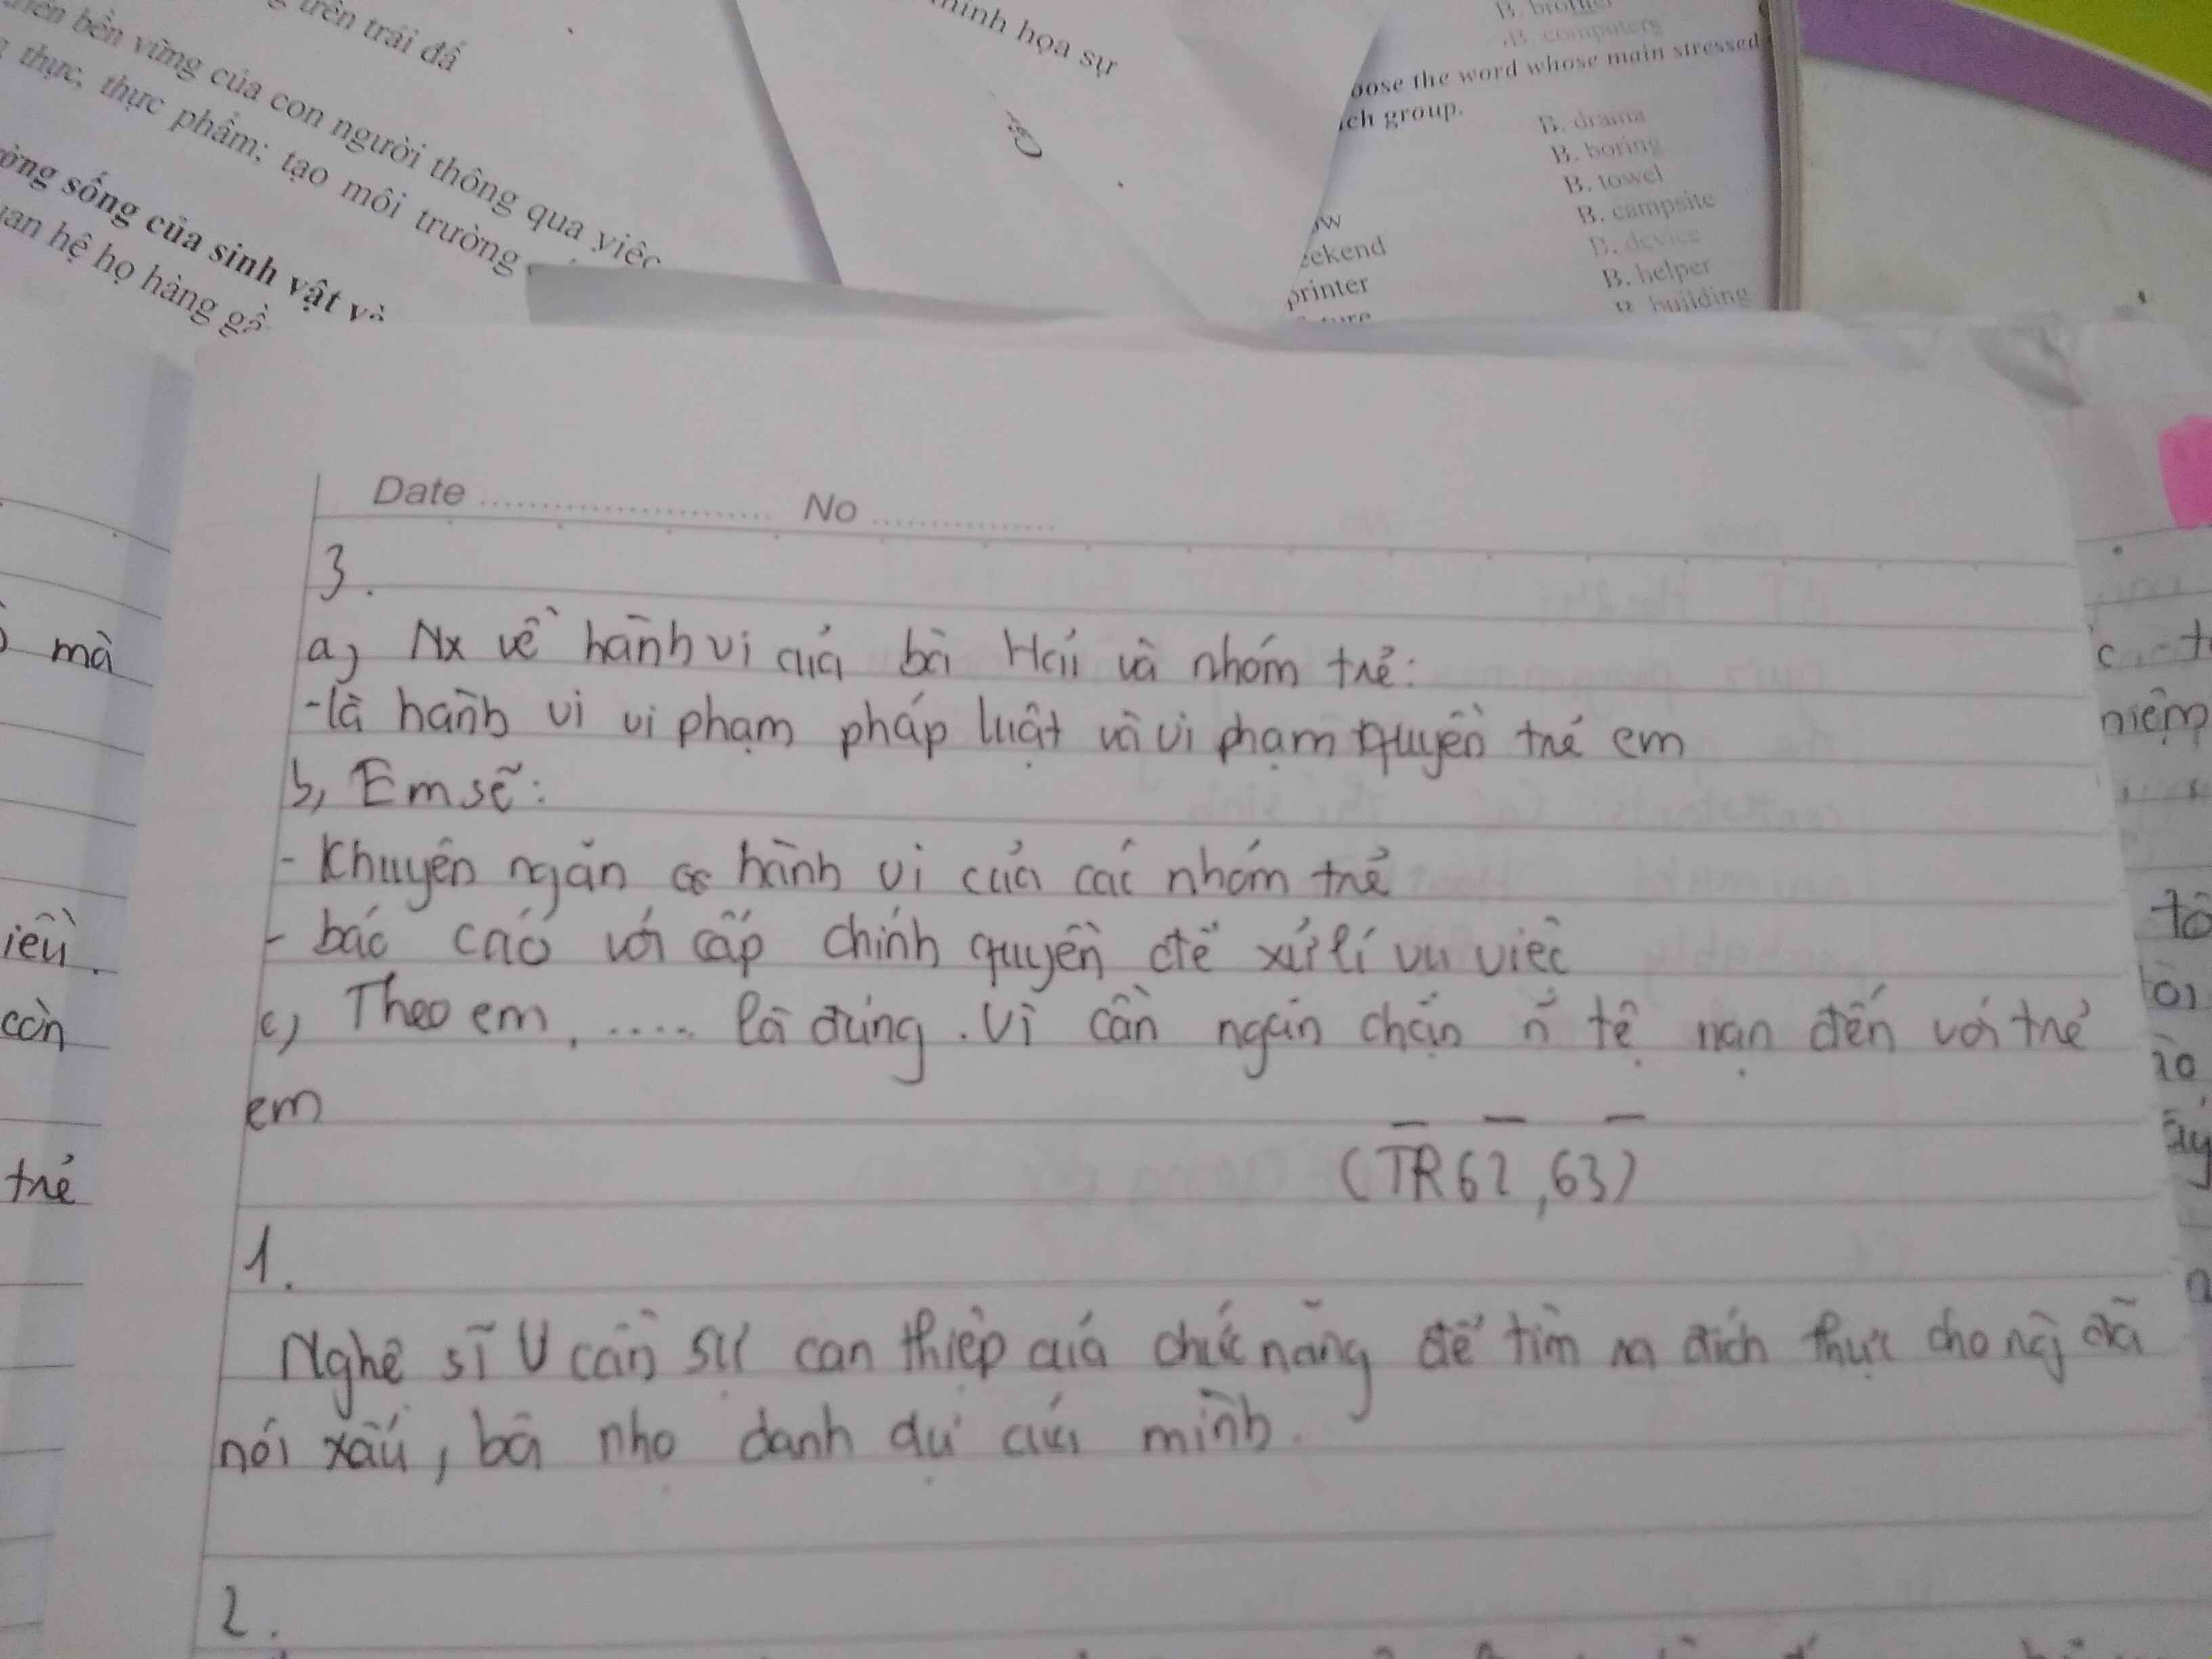 trên trái đấ
bền vững của con người thông qua việc
thực, thực phẩm; tạo môi trường
sống của sinh vật và
hệ họ hàng gầ
minh họa sự
B. brother
B. computers
oose the word whose main stressed
ich group.
B. drama
B. boring
B. towel
ow
B. campsite
eekend
B. device
printer
B. helper
B. building
Date No
3.
a, Nx về hành vi của bà Hải và nhóm trẻ:
-là hành vi vi phạm pháp luật và vi phạm quyền trẻ em
b, Em sẽ:
- Khuyên ngăn hành vi của các nhóm trẻ
- báo cáo với cấp chính quyền để xử lí vụ việc
c, Theo em, ..... là đúng. Vì cần ngăn chặn tệ nạn đến với trẻ
em
(TR62,63)
1.
Nghệ sĩ V cần sự can thiệp của chức năng để tìm ra đích thực cho ng̀ đã
nói xấu, bôi nhọ danh dự của mình.
2.
mà
iều.
còn
trẻ
niệm